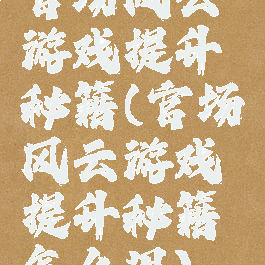 官场风云
游戏提升
秘籍(官场
风云游戏
提升秘籍
怎么调)